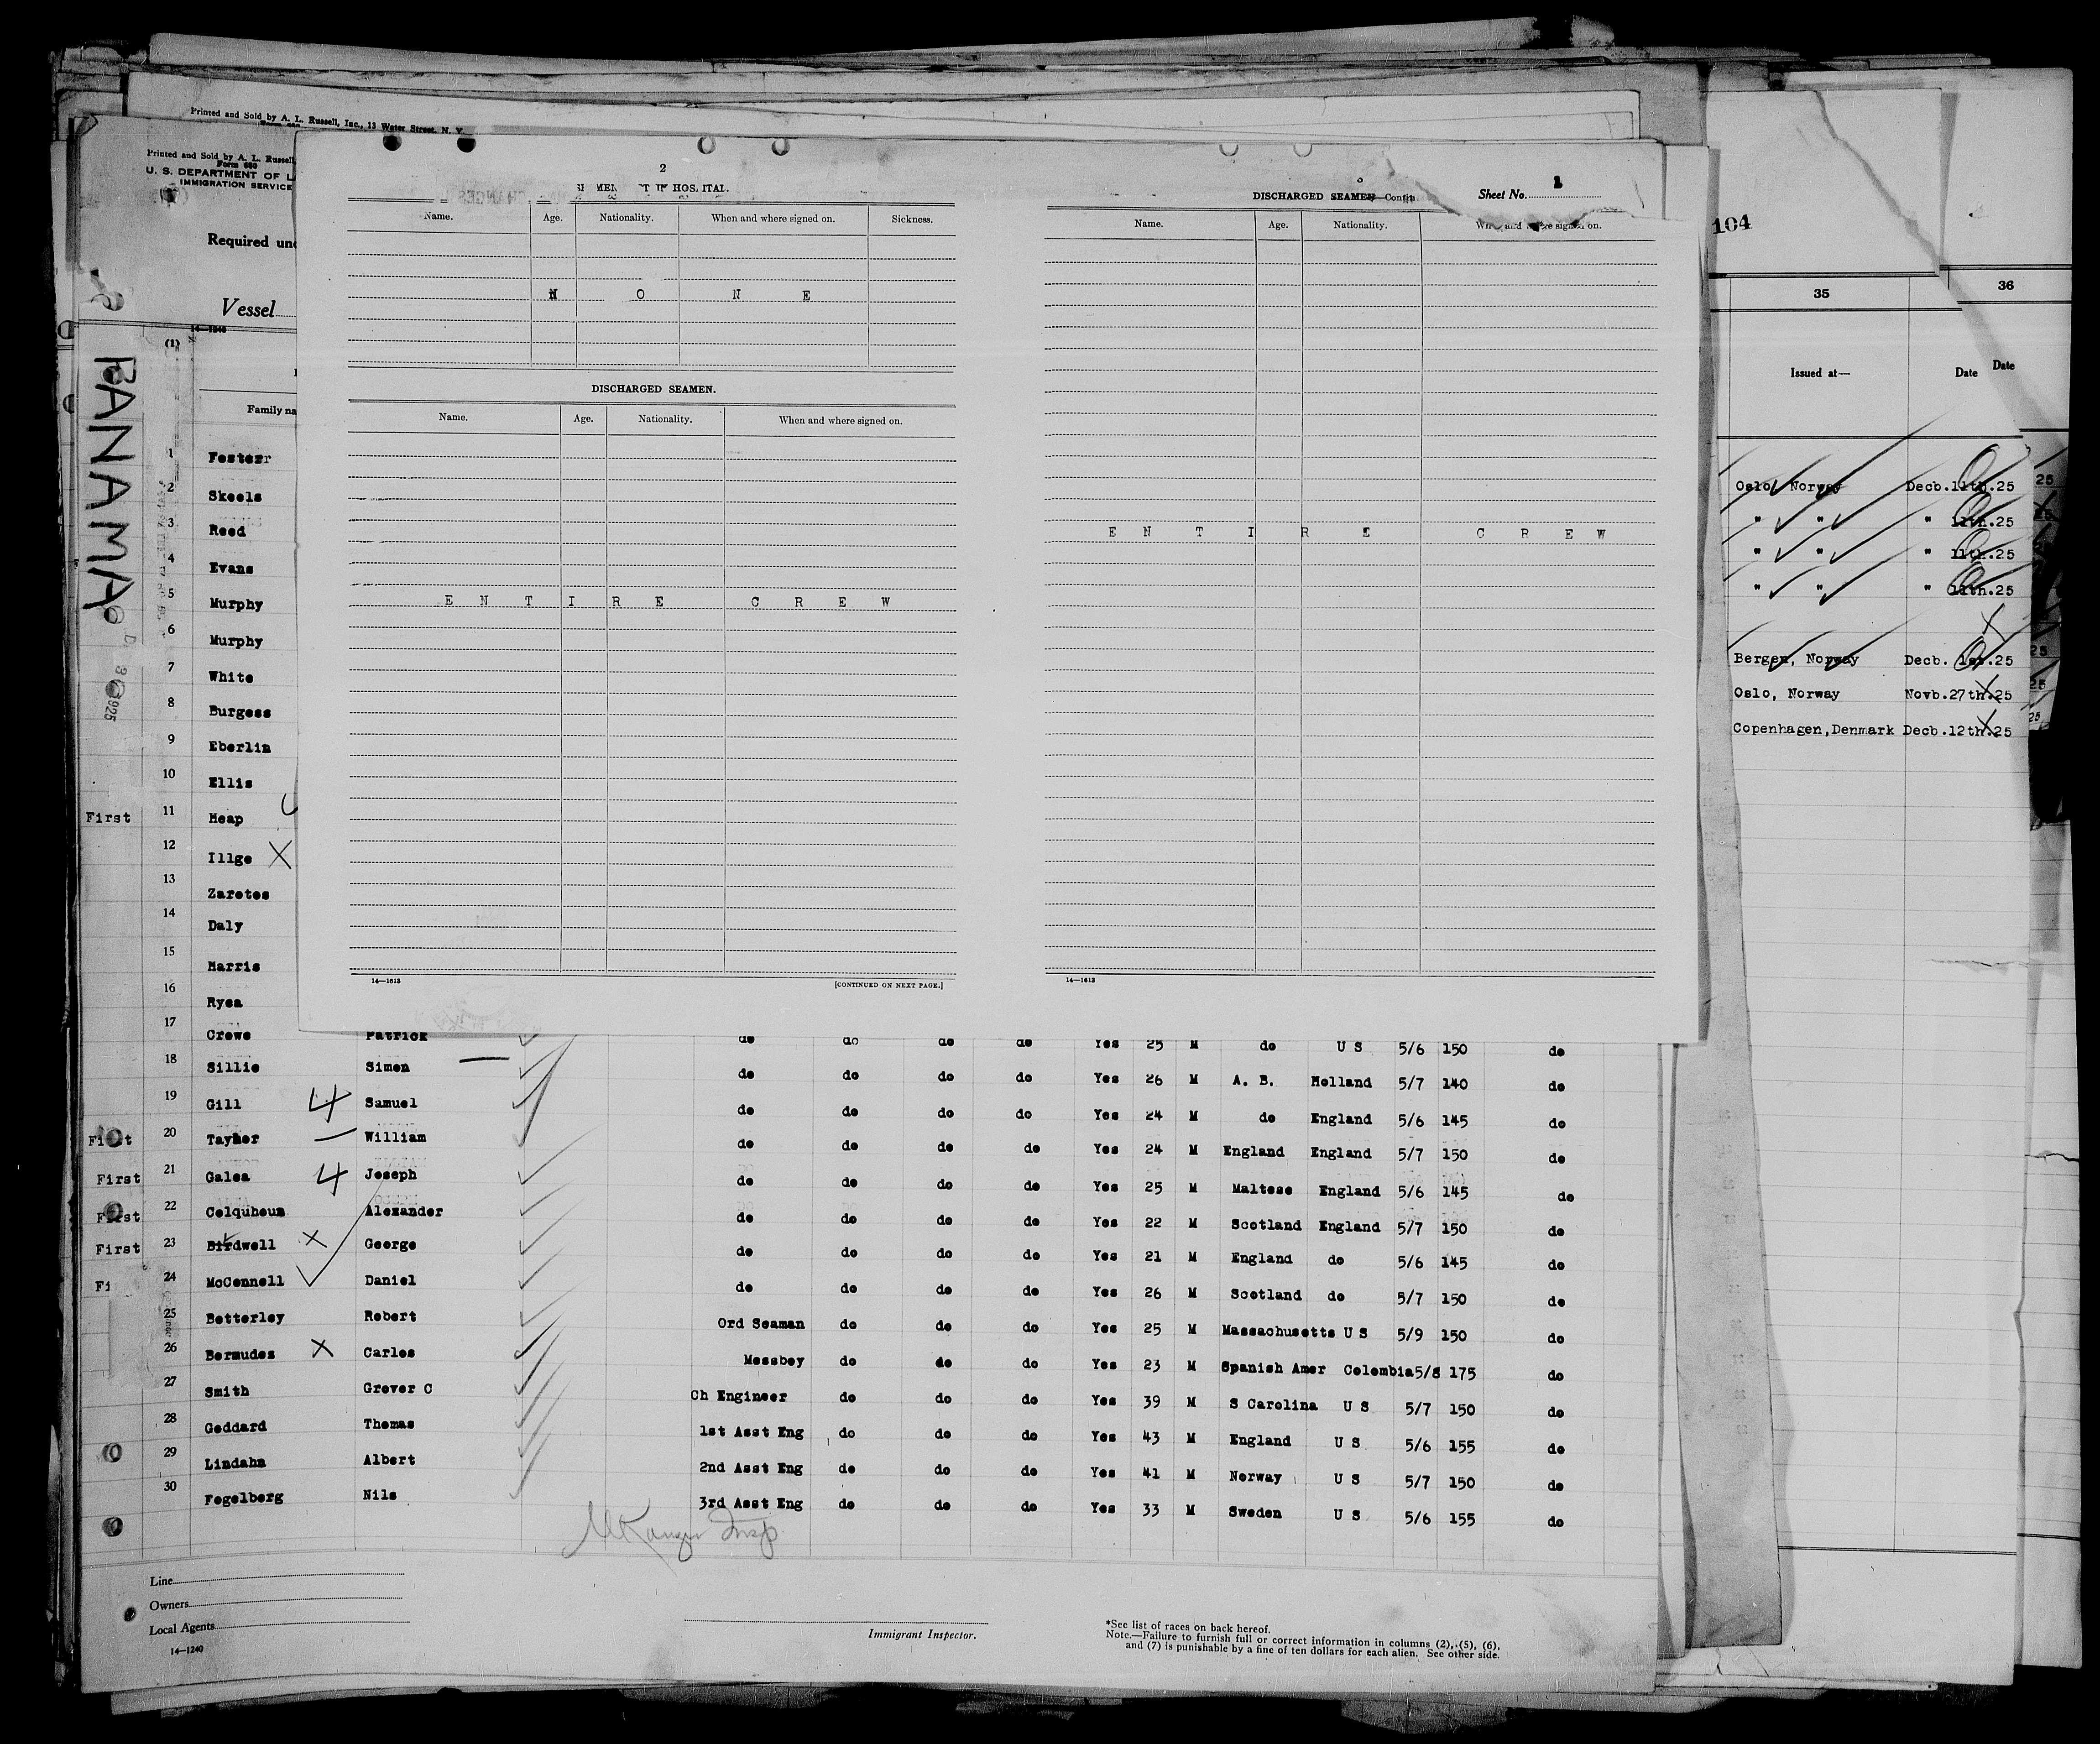 Printed and Sold by A. L. Russell, Inc., 13 Water Street, N. Y.
Printed and Sold by A. L. Russell,
Form 680
U. S. DEPARTMENT OF L
IMMIGRATION SERVICE
Required und
Vessel
14—1240
(1)
Family na
PANAMA
1 Foster
2 Skeels
3 Reed
4 Evans
5 Murphy
6 Murphy
7 White
8 Burgess
9 Eberlin
10 Ellis
First 11 Heap
12 Illge X
13 Zaretes
14 Daly
15 Harris
16 Ryea
2
HOSPITAL.
Name. Age. Nationality. When and where signed on. Sickness.
N O N E
DISCHARGED SEAMEN.
Name. Age. Nationality. When and where signed on.
E N T I R E C R E W
14—1613
[CONTINUED ON NEXT PAGE.]
3
DISCHARGED SEAMEN—Contin
Sheet No. 1
Name. Age. Nationality. When and where signed on.
E N T I R E C R E W
14—1613
104
35 36
Issued at— Date Date
Oslo, Norway Decb.11th.25
" " " 11th.25
" " " 11th.25
" " " 11th.25
Bergen, Norway Decb. 1st.25
Oslo, Norway Novb.27th.25
Copenhagen,Denmark Decb.12th.25
17 Crowe Patrick do do do do Yes 25 M do U S 5/6 150 do
18 Sillie Simon do do do do Yes 26 M A. B. Holland 5/7 140 do
19 Gill 4 Samuel do do do do Yes 24 M do England 5/6 145 do
First 20 William do do do do Yes 24 M England England 5/7 150 do
First 21 Galea 4 Joseph do do do do Yes 25 M Maltese England 5/6 145 do
First 22 Colquhoun Alexander do do do do Yes 22 M Scotland England 5/7 150 do
First 23 Birdwell X George do do do do Yes 21 M England do 5/6 145 do
Fi 24 McConnell Daniel do do do do Yes 26 M Scotland do 5/7 150 do
25 Botterley Robert Ord Seaman do do do Yes 25 M Massachusetts U S 5/9 150 do
26 Bermudez X Carlos Messboy do do do Yes 23 M Spanish Amer Colombia 5/8 175 do
27 Smith Grover C Ch Engineer do do do Yes 39 M S Carolina U S 5/7 150 do
28 Goddard Thomas 1st Asst Eng do do do Yes 43 M England U S 5/6 155 do
29 Lindahn Albert 2nd Asst Eng do do do Yes 41 M Norway U S 5/7 150 do
30 Fogelberg Nils 3rd Asst Eng do do do Yes 33 M Sweden U S 5/6 155 do
Insp
Line
Owners
Local Agents
14—1240
Immigrant Inspector.
*See list of races on back hereof.
Note.—Failure to furnish full or correct information in columns (2), (5), (6),
and (7) is punishable by a fine of ten dollars for each alien. See other side.